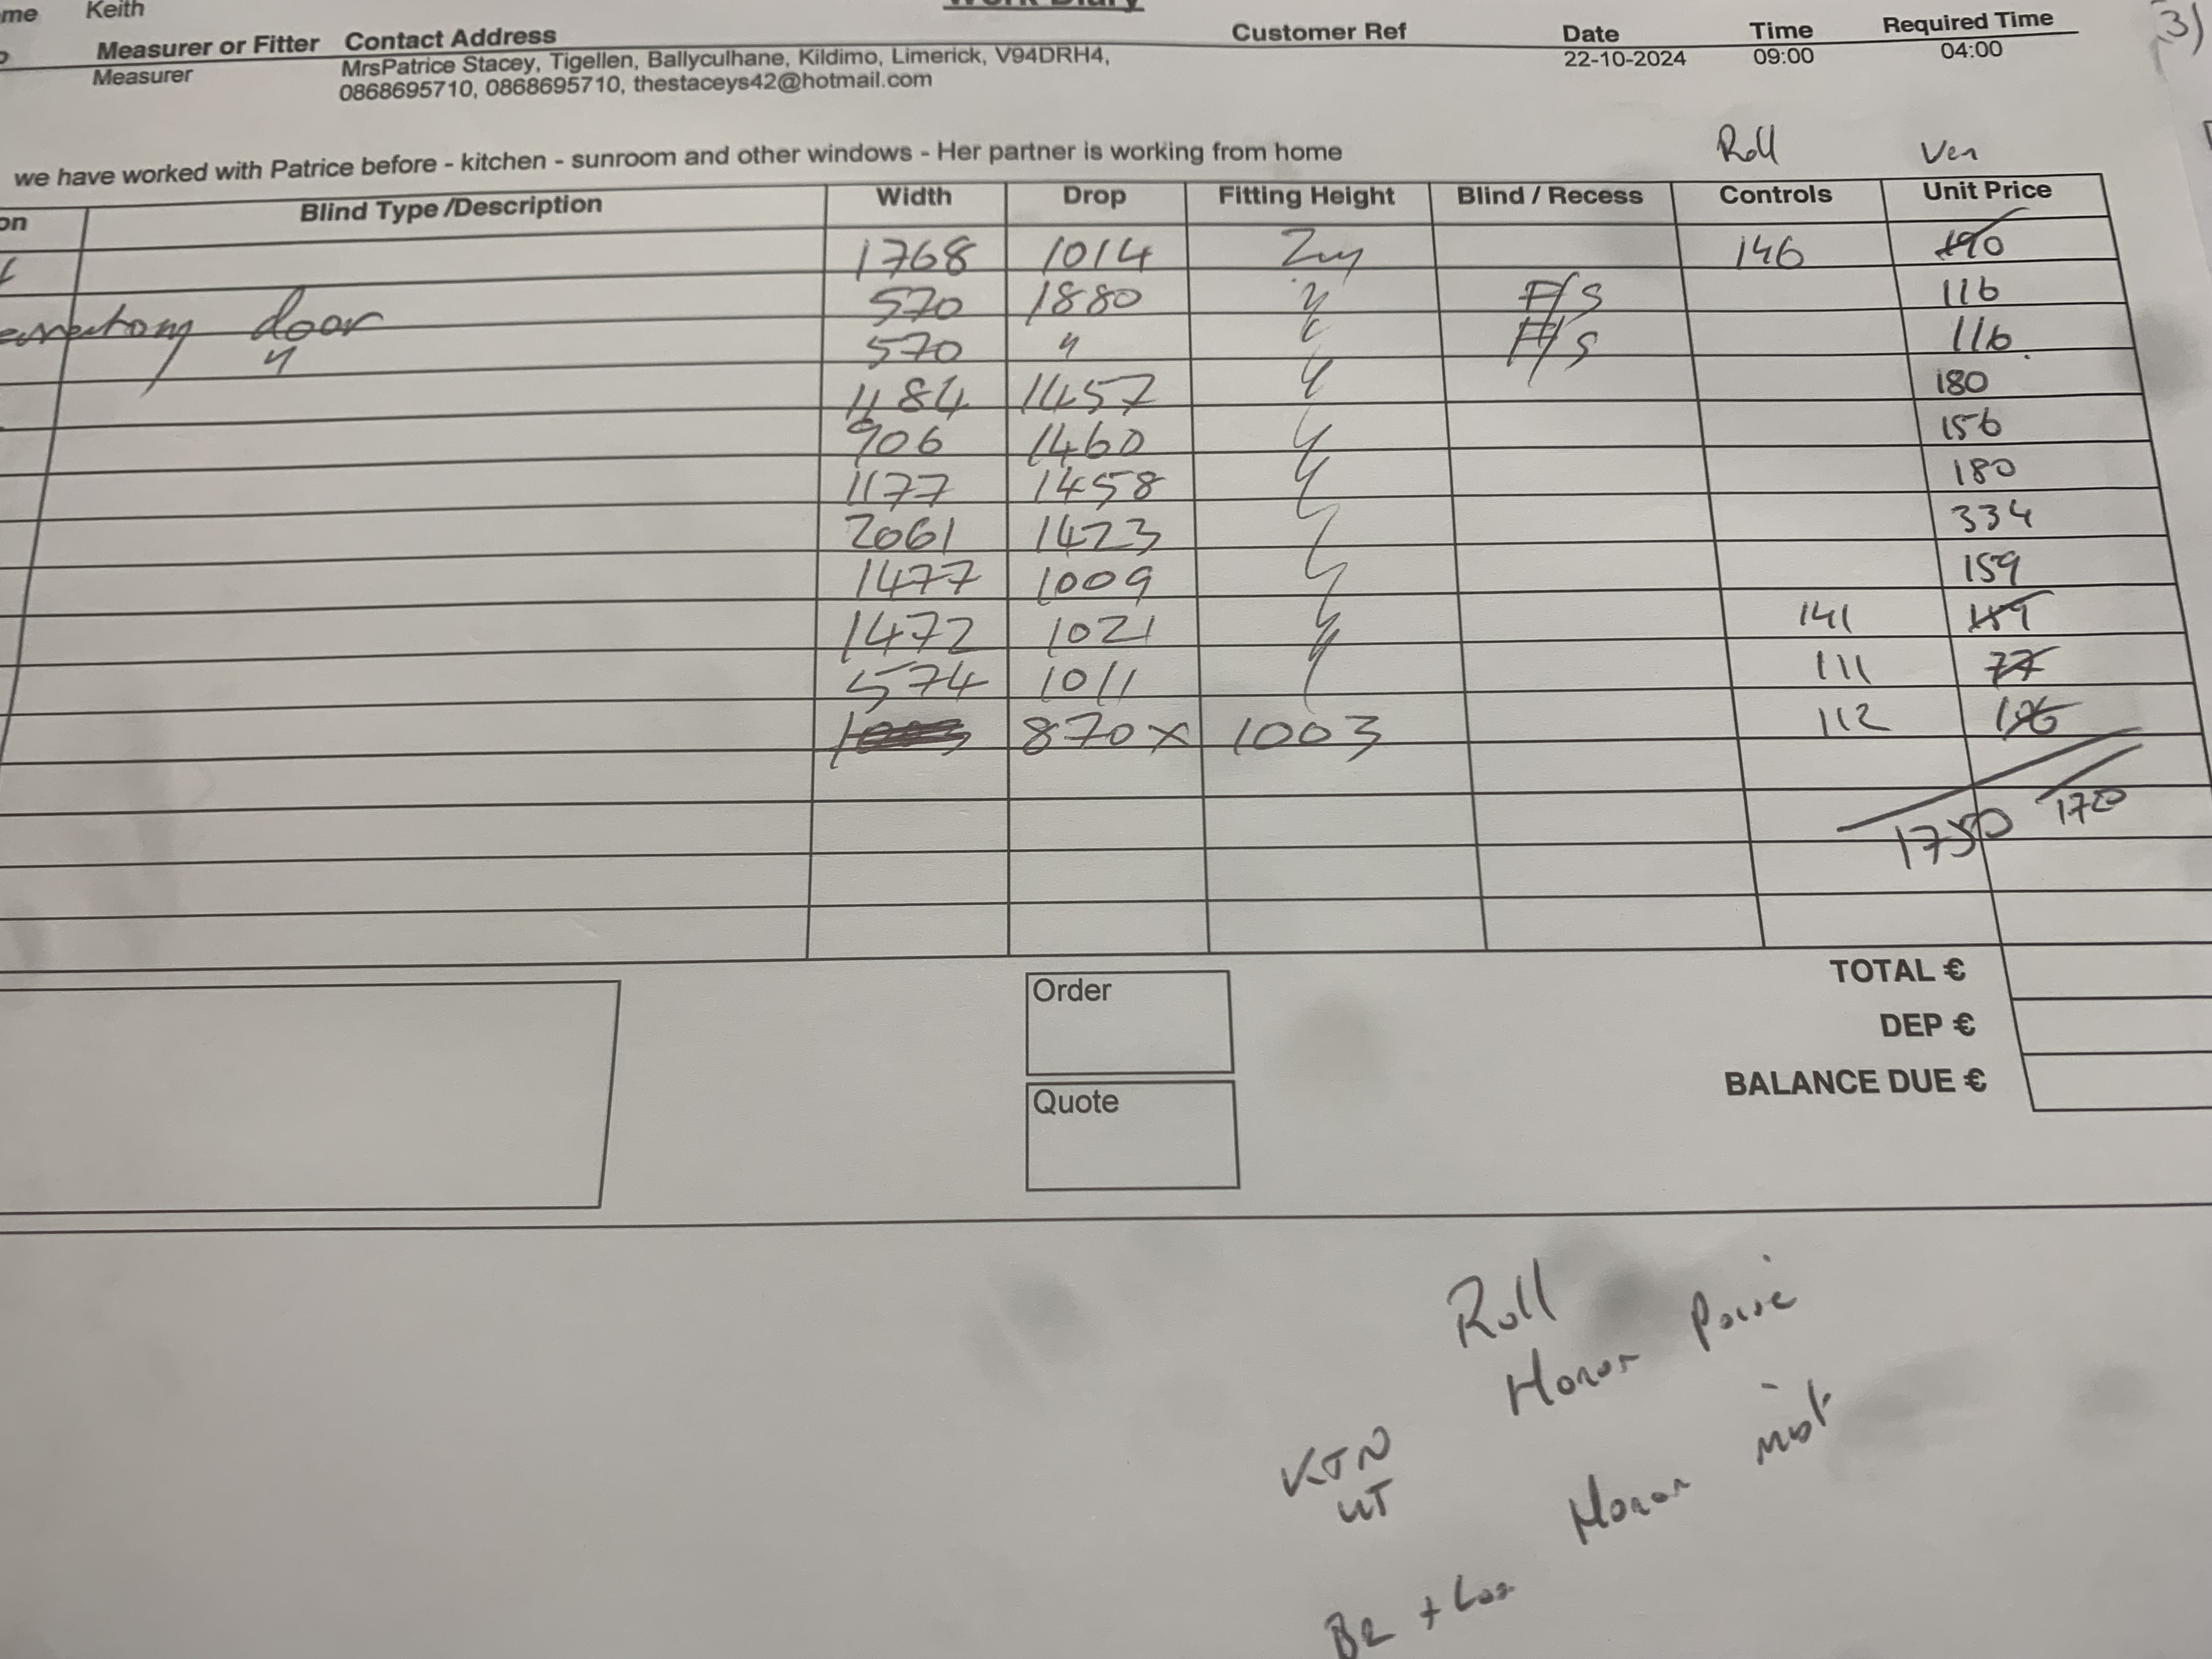 me Keith
Work Diary
Measurer or Fitter Contact Address Customer Ref Date Time Required Time
Measurer MrsPatrice Stacey, Tigellen, Ballyculhane, Kildimo, Limerick, V94DRH4, 22-10-2024 09:00 04:00
0868695710, 0868695710, thestaceys42@hotmail.com
3)
we have worked with Patrice before - kitchen - sunroom and other windows - Her partner is working from home
Roll Ven
on Blind Type /Description Width Drop Fitting Height Blind / Recess Controls Unit Price
1768 1014 146 190
door 570 1880 " F/S 116
" 570 " " F/S 116
1184 1457 " 180
906 1460 " 156
1177 1458 " 180
2061 1423 " 334
1477 1009 " 159
1472 1021 " 141 159
574 1011 " 111 77
870 x 1003 112 126
1750 1720
TOTAL €
DEP €
BALANCE DUE €
Order
Quote
Roll
Honor
KTN
UT
Honor mist
BR +